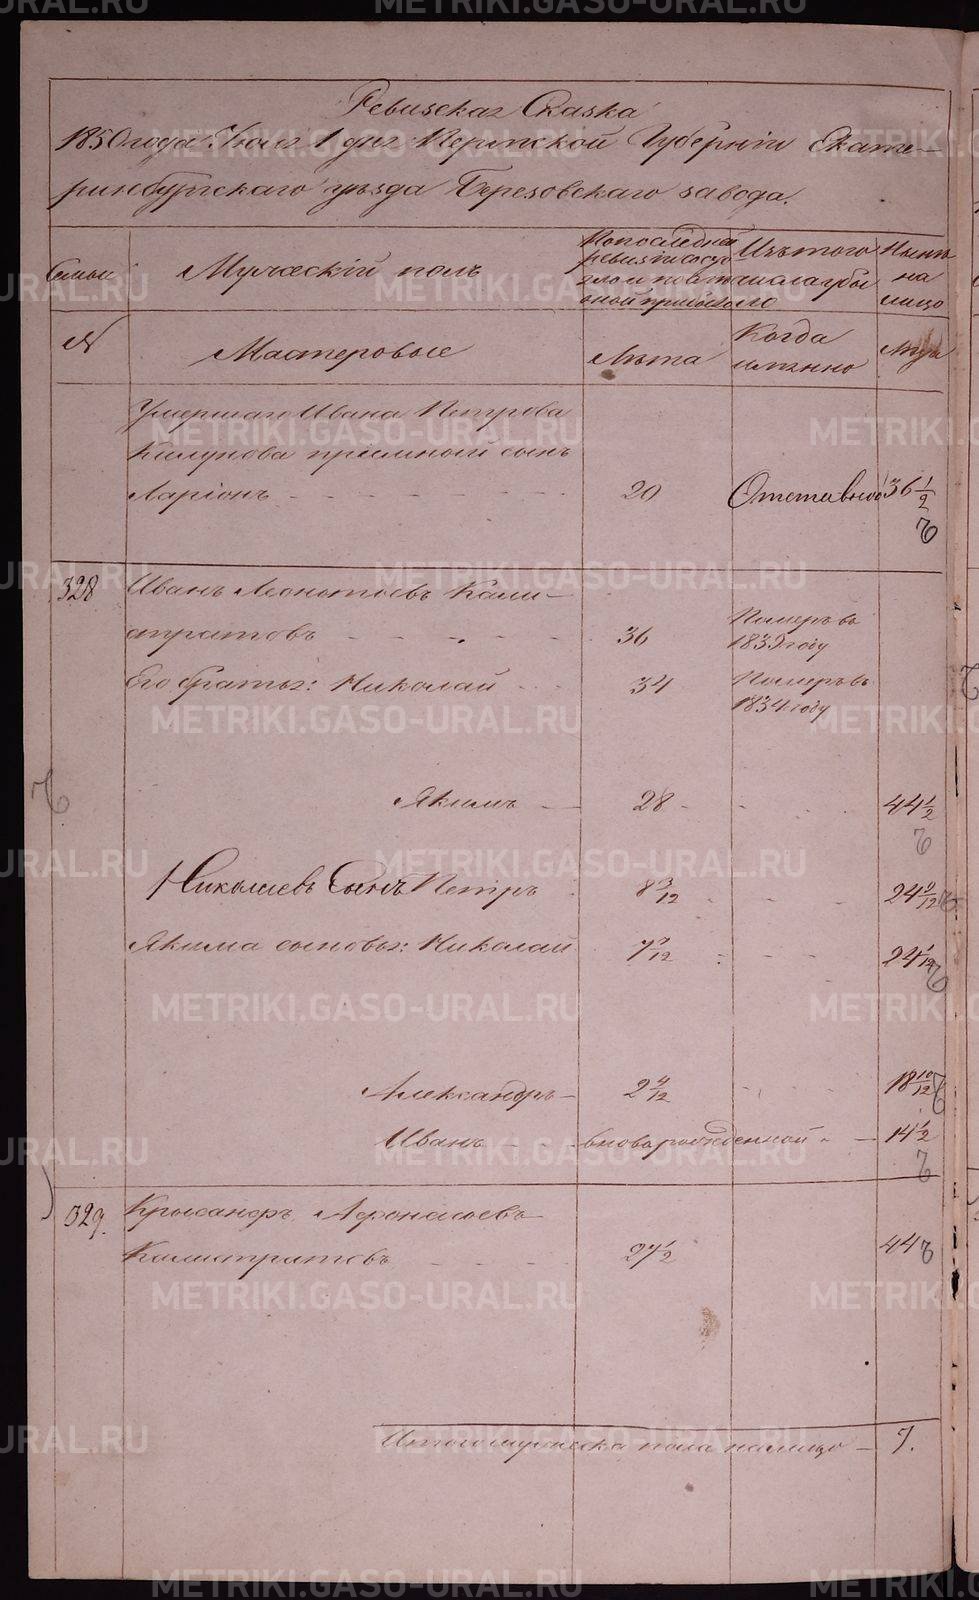 Ревизская Сказка
1850 года Июля 1 дня Пермской Губерніи Екате-
ринбургскаго уѣзда Березовскаго завода.
Семьи
Мужескій полъ
По последней
ревизіи состо
яло и после
оной прибыло
Изъ того
числа выбы
ло
Нынѣ
на
лицо
№
Мастеровые
Лѣта
Когда
имянно
Лѣта
Умершаго Ивана Петрова
пріемный сынъ
Ларіонъ 20 Отставной 36 1/2
328 Иванъ Леонтьевъ Кали-
стратовъ 36 Померъ въ
1839 году
Его братья: Николай 34 Померъ въ
1834 году
Якимъ 28 44 1/2
Николаевъ Сынъ Петръ 8 24
Якима сыновья: Николай 7 24
Александръ 2 18 10/12
Иванъ вноворожденной 14 1/2
329. Крисанфъ Афонасьевъ
Калистратовъ 27 1/2 44
Итого мужеска пола налицо 7.
METRIKI.GASO-URAL.RU